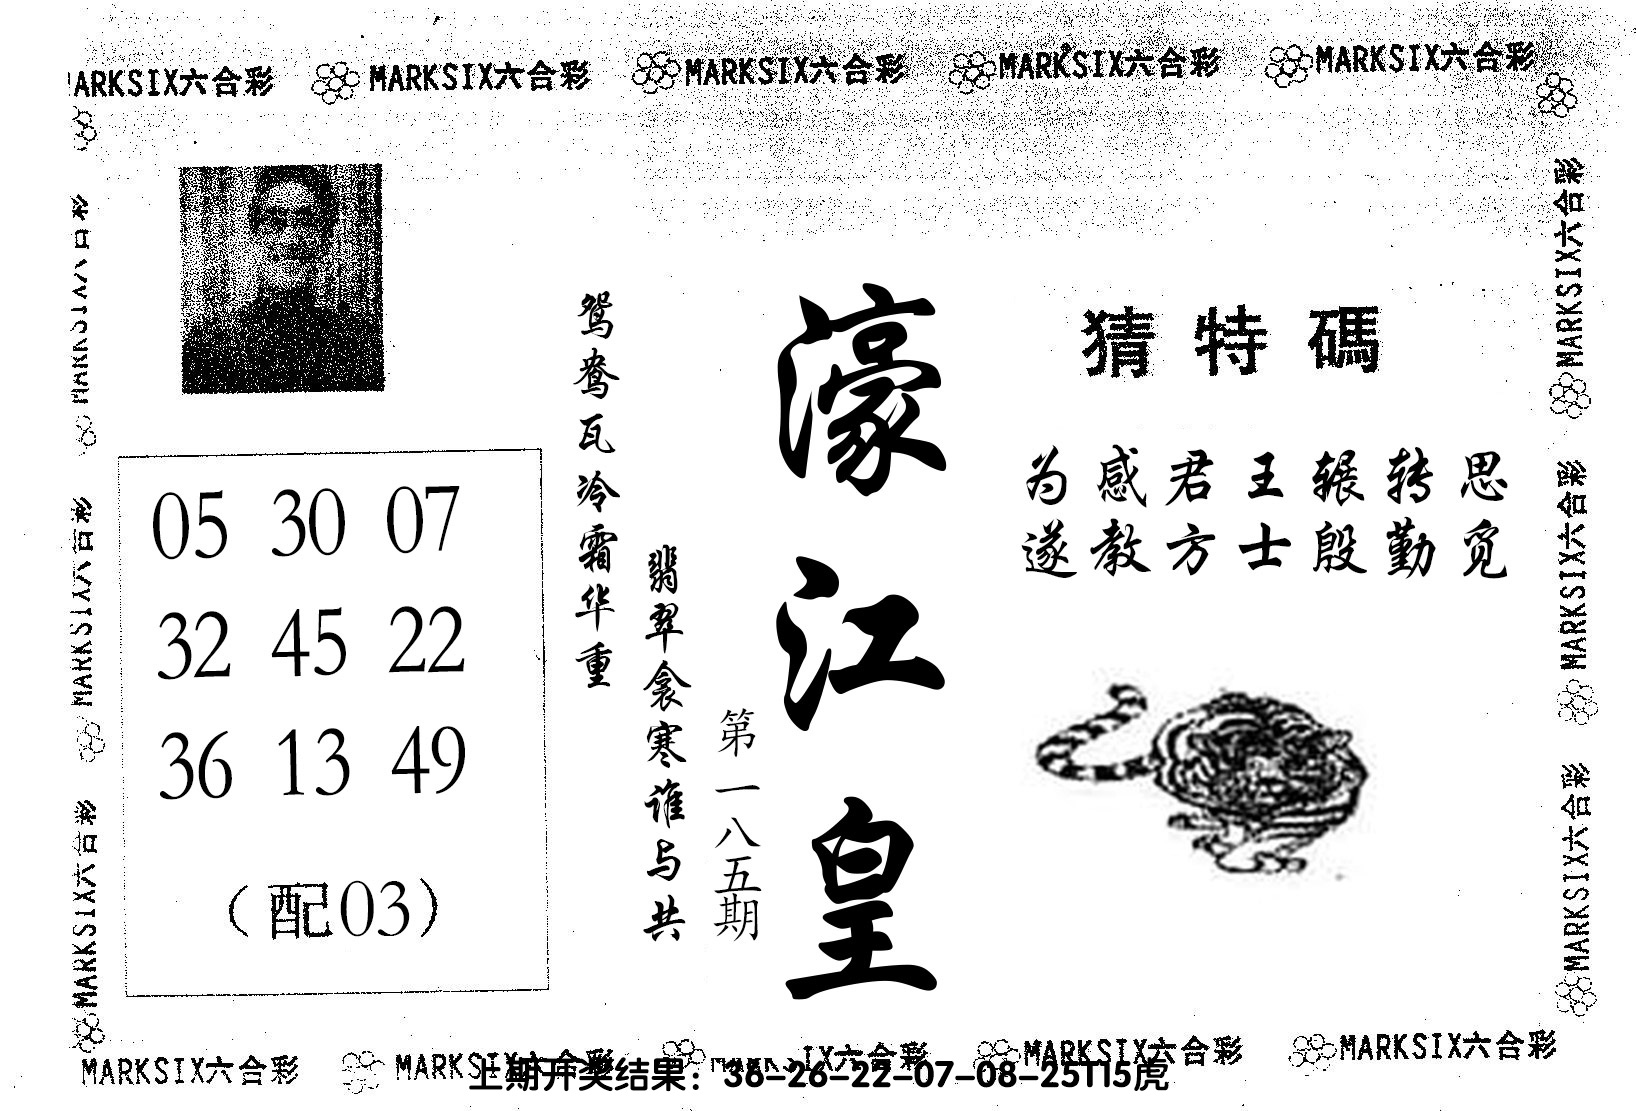 MARKSIX六合彩 MARKSIX六合彩 MARKSIX六合彩 MARKSIX六合彩 MARKSIX六合彩
MARKSIX六合彩
MARKSIX六合彩
MARKSIX六合彩
MARKSIX六合彩
MARKSIX六合彩
MARKSIX六合彩
05 30 07
32 45 22
36 13 49
（配03）
鸳鸯瓦冷霜华重
翡翠衾寒谁与共
第一八五期
濠江皇
猜特碼
为感君王辗转思
遂教方士殷勤觅
MARKSIX六合彩 MARKSIX六合彩 MARKSIX六合彩 MARKSIX六合彩 MARKSIX六合彩
上期开奖结果：36-26-22-07-08-25T15虎